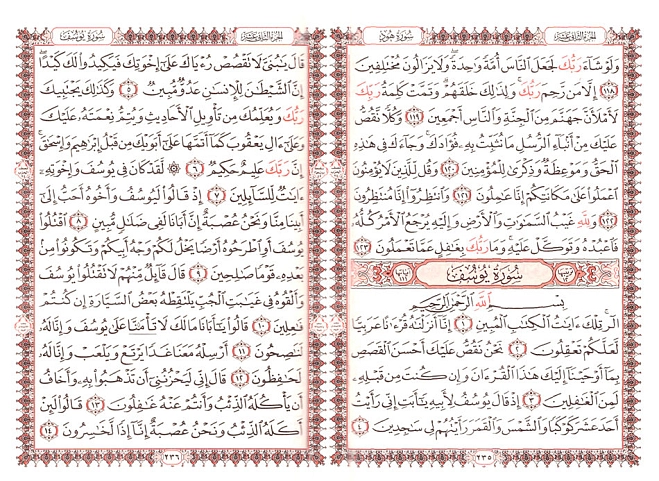 سورة هود
الجزء الثاني عشر
وَلَوْ شَآءَ رَبُّكَ لَجَعَلَ ٱلنَّاسَ أُمَّةً وَٰحِدَةً وَلَا يَزَالُونَ مُخْتَلِفِينَ
١١٨ إِلَّا مَن رَّحِمَ رَبُّكَ وَلِذَٰلِكَ خَلَقَهُمْ وَتَمَّتْ كَلِمَةُ رَبِّكَ
لَأَمْلَأَنَّ جَهَنَّمَ مِنَ ٱلْجِنَّةِ وَٱلنَّاسِ أَجْمَعِينَ ١١٩ وَكُلًّا نَّقُصُّ
عَلَيْكَ مِنْ أَنۢبَآءِ ٱلرُّسُلِ مَا نُثَبِّتُ بِهِۦ فُؤَادَكَ وَجَآءَكَ فِى هَٰذِهِ
ٱلْحَقُّ وَمَوْعِظَةٌ وَذِكْرَىٰ لِلْمُؤْمِنِينَ ١٢٠ وَقُل لِّلَّذِينَ لَا يُؤْمِنُونَ
ٱعْمَلُوا۟ عَلَىٰ مَكَانَتِكُمْ إِنَّا عَٰمِلُونَ ١٢١ وَٱنتَظِرُوٓا۟ إِنَّا مُنتَظِرُونَ
١٢٢ وَلِلَّهِ غَيْبُ ٱلسَّمَٰوَٰتِ وَٱلْأَرْضِ وَإِلَيْهِ يُرْجَعُ ٱلْأَمْرُ كُلُّهُۥ
فَٱعْبُدْهُ وَتَوَكَّلْ عَلَيْهِ وَمَا رَبُّكَ بِغَٰفِلٍ عَمَّا تَعْمَلُونَ ١٢٣
سورة يوسف
بِسْمِ ٱللَّهِ ٱلرَّحْمَٰنِ ٱلرَّحِيمِ
الٓر تِلْكَ ءَايَٰتُ ٱلْكِتَٰبِ ٱلْمُبِينِ ١ إِنَّآ أَنزَلْنَٰهُ قُرْءَٰنًا عَرَبِيًّا
لَّعَلَّكُمْ تَعْقِلُونَ ٢ نَحْنُ نَقُصُّ عَلَيْكَ أَحْسَنَ ٱلْقَصَصِ
بِمَآ أَوْحَيْنَآ إِلَيْكَ هَٰذَا ٱلْقُرْءَانَ وَإِن كُنتَ مِن قَبْلِهِۦ
لَمِنَ ٱلْغَٰفِلِينَ ٣ إِذْ قَالَ يُوسُفُ لِأَبِيهِ يَٰٓأَبَتِ إِنِّى رَأَيْتُ
أَحَدَ عَشَرَ كَوْكَبًا وَٱلشَّمْسَ وَٱلْقَمَرَ رَأَيْتُهُمْ لِى سَٰجِدِينَ ٤
٢٣٥
الجزء الثاني عشر
سورة يوسف
قَالَ يَٰبُنَىَّ لَا تَقْصُصْ رُءْيَاكَ عَلَىٰٓ إِخْوَتِكَ فَيَكِيدُوا۟ لَكَ كَيْدًا
إِنَّ ٱلشَّيْطَٰنَ لِلْإِنسَٰنِ عَدُوٌّ مُّبِينٌ ٥ وَكَذَٰلِكَ يَجْتَبِيكَ
رَبُّكَ وَيُعَلِّمُكَ مِن تَأْوِيلِ ٱلْأَحَادِيثِ وَيُتِمُّ نِعْمَتَهُۥ عَلَيْكَ
وَعَلَىٰٓ ءَالِ يَعْقُوبَ كَمَآ أَتَمَّهَا عَلَىٰٓ أَبَوَيْكَ مِن قَبْلُ إِبْرَٰهِيمَ وَإِسْحَٰقَ
إِنَّ رَبَّكَ عَلِيمٌ حَكِيمٌ ٦ ۞ لَّقَدْ كَانَ فِى يُوسُفَ وَإِخْوَتِهِۦٓ
ءَايَٰتٌ لِّلسَّآئِلِينَ ٧ إِذْ قَالُوا۟ لَيُوسُفُ وَأَخُوهُ أَحَبُّ إِلَىٰٓ
أَبِينَا مِنَّا وَنَحْنُ عُصْبَةٌ إِنَّ أَبَانَا لَفِى ضَلَٰلٍ مُّبِينٍ ٨ ٱقْتُلُوا۟
يُوسُفَ أَوِ ٱطْرَحُوهُ أَرْضًا يَخْلُ لَكُمْ وَجْهُ أَبِيكُمْ وَتَكُونُوا۟ مِنۢ
بَعْدِهِۦ قَوْمًا صَٰلِحِينَ ٩ قَالَ قَآئِلٌ مِّنْهُمْ لَا تَقْتُلُوا۟ يُوسُفَ
وَأَلْقُوهُ فِى غَيَٰبَتِ ٱلْجُبِّ يَلْتَقِطْهُ بَعْضُ ٱلسَّيَّارَةِ إِن كُنتُمْ
فَٰعِلِينَ ١٠ قَالُوا۟ يَٰٓأَبَانَا مَا لَكَ لَا تَأْمَ۫نَّا عَلَىٰ يُوسُفَ وَإِنَّا لَهُۥ
لَنَٰصِحُونَ ١١ أَرْسِلْهُ مَعَنَا غَدًا يَرْتَعْ وَيَلْعَبْ وَإِنَّا لَهُۥ
لَحَٰفِظُونَ ١٢ قَالَ إِنِّى لَيَحْزُنُنِىٓ أَن تَذْهَبُوا۟ بِهِۦ وَأَخَافُ
أَن يَأْكُلَهُ ٱلذِّئْبُ وَأَنتُمْ عَنْهُ غَٰفِلُونَ ١٣ قَالُوا۟ لَئِنْ
أَكَلَهُ ٱلذِّئْبُ وَنَحْنُ عُصْبَةٌ إِنَّآ إِذًا لَّخَٰسِرُونَ ١٤
٢٣٦